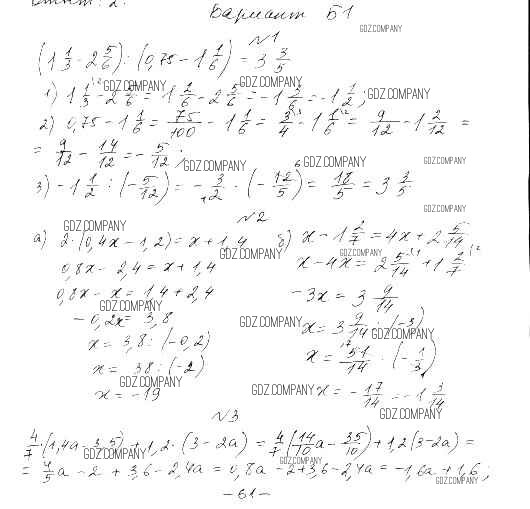 Вариант Б1
GDZ.COMPANY
№1
(1 1/3 - 2 5/6) : (0,75 - 1 1/6) = 3 3/5
GDZ.COMPANY GDZ.COMPANY
1) 1 1/3 - 2 5/6 = 1 2/6 - 2 5/6 = -1 3/6 = -1 1/2; GDZ.COMPANY
2) 0,75 - 1 1/6 = 75/100 - 1 1/6 = 3/4 - 1 1/6 = 9/12 - 1 2/12 =
= 9/12 - 14/12 = - 5/12; GDZ.COMPANY GDZ.COMPANY GDZ.COMPANY
3) -1 1/2 : (- 5/12) = - 3/2 · (- 12/5) = 18/5 = 3 3/5
GDZ.COMPANY
№2
GDZ.COMPANY
а) 2·(0,4x - 1,2) = x + 1,4
GDZ.COMPANY
0,8x - 2,4 = x + 1,4
0,8x - x = 1,4 + 2,4
GDZ.COMPANY
-0,2x = 3,8
x = 3,8 : (-0,2)
x = 38 : (-2)
GDZ.COMPANY
x = -19
б) x - 1 2/7 = 4x + 2 5/14
GDZ.COMPANY
x - 4x = 2 5/14 + 1 2/7
-3x = 3 9/14
GDZ.COMPANY x = 3 9/14 : (-3)
GDZ.COMPANY
x = 51/14 · (- 1/3)
GDZ.COMPANY x = - 17/14 = -1 3/14
GDZ.COMPANY
№3
4/7·(1,4a - 3,5) + 1,2·(3 - 2a) = 4/7(14/10 a - 35/10) + 1,2(3 - 2a) =
GDZ.COMPANY GDZ.COMPANY
= 4/5 a - 2 + 3,6 - 2,4a = 0,8a - 2 + 3,6 - 2,4a = -1,6a + 1,6;
GDZ.COMPANY
- 61 -